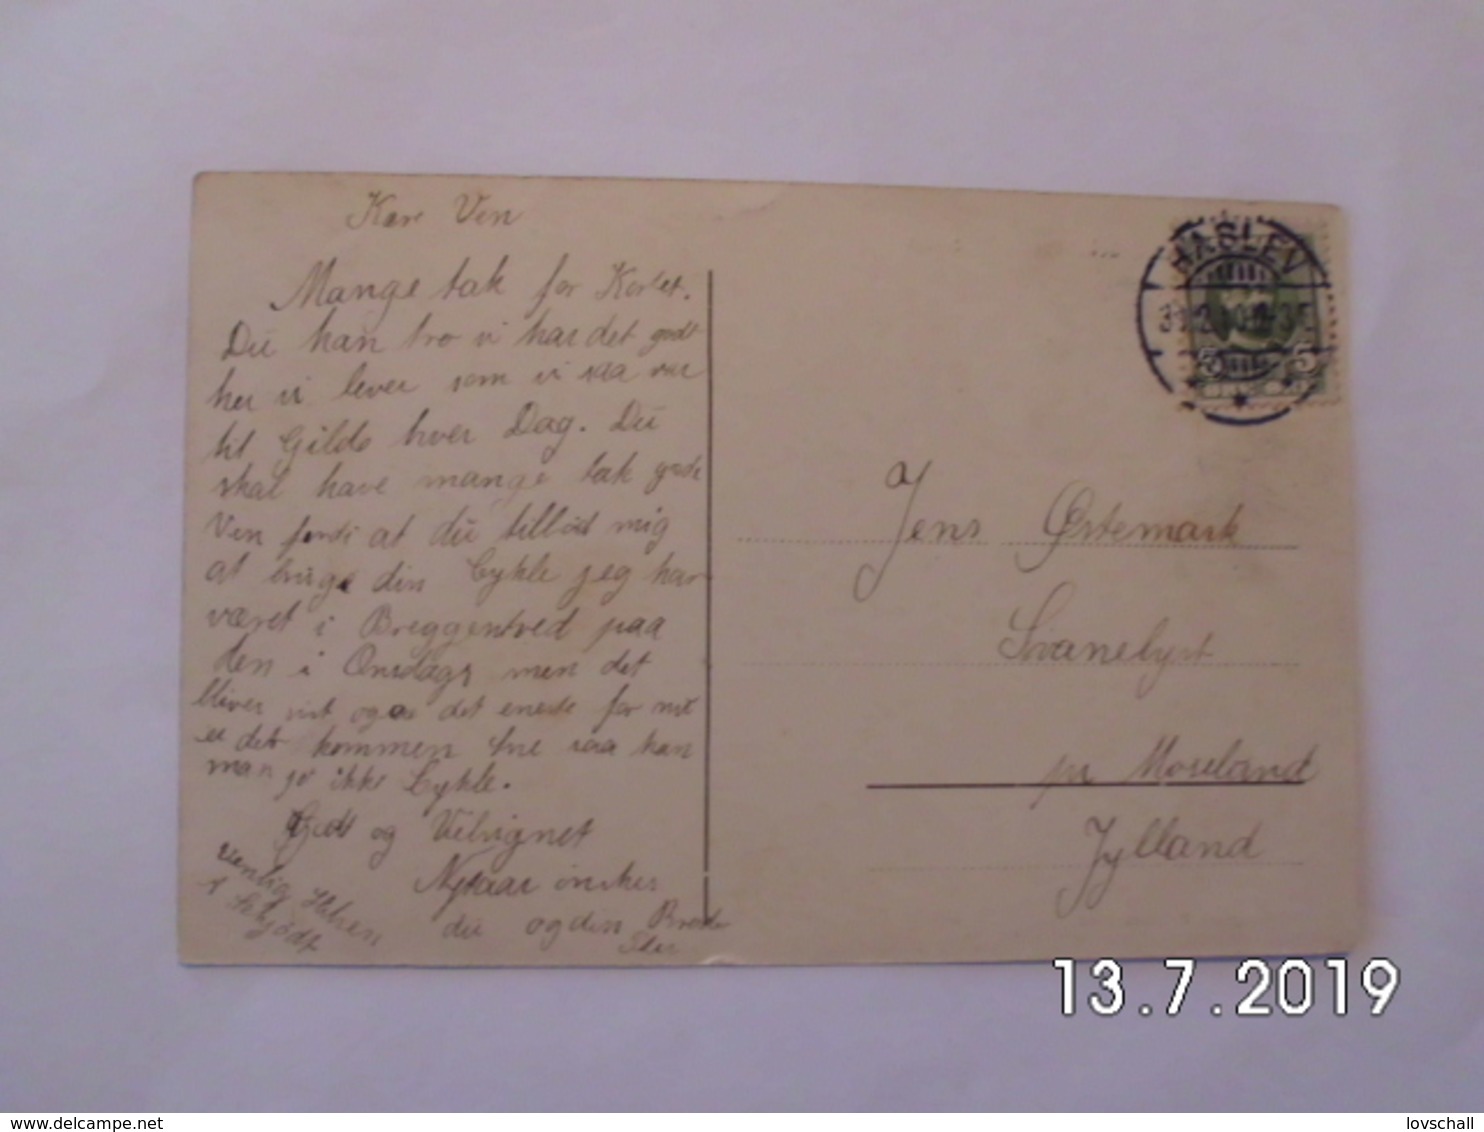 Kære Ven
Mange tak for Kortet.
Du kan tro vi har det godt
her vi lever som vi saa var
til Gilde hver Dag. Du
skal have mange tak gode
Ven fordi at du tillod mig
at bruge din Cykle jeg har
været i Breggentved paa
den i Onsdags men det
bliver vist ogsaa det eneste for nu
er det kommen Sne saa kan
man jo ikke Cykle.
Godt og Velsignet
Nytaar ønskes
du og din Broder
Venlig Hilsen
HASLEV
5 5
Jens Østemark
Svanelyst
pr Moseland
Jylland
13.7.2019
delcampe.net
lovschall